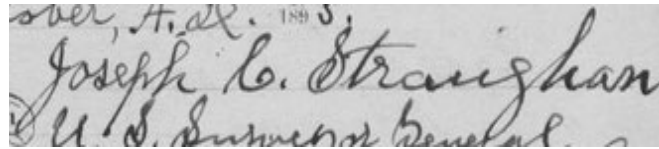 ober, A.D. 1893.
Joseph C. Straughan
U. S. Surveyor General.